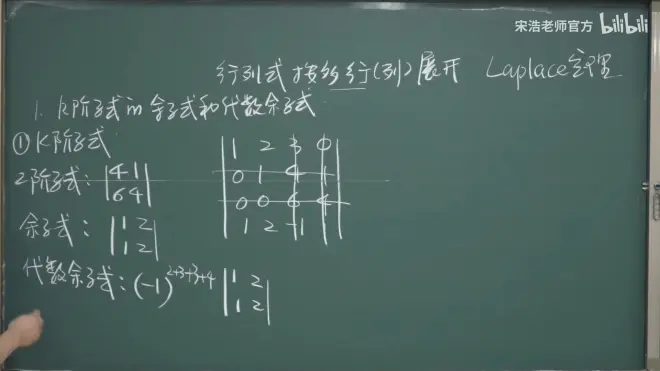 宋浩老师官方 bilibili
行列式按多行(列)展开 Laplace定理
1. k阶子式的余子式和代数余子式
① K阶子式
2阶子式: |4 1|
|6 4|
余子式: |1 2|
|1 2|
代数余子式: (-1)^{2+3+3+4} |1 2|
|1 2|
|1 2 3 4|
|0 1 4 1|
|0 0 6 4|
|1 2 -1 1|